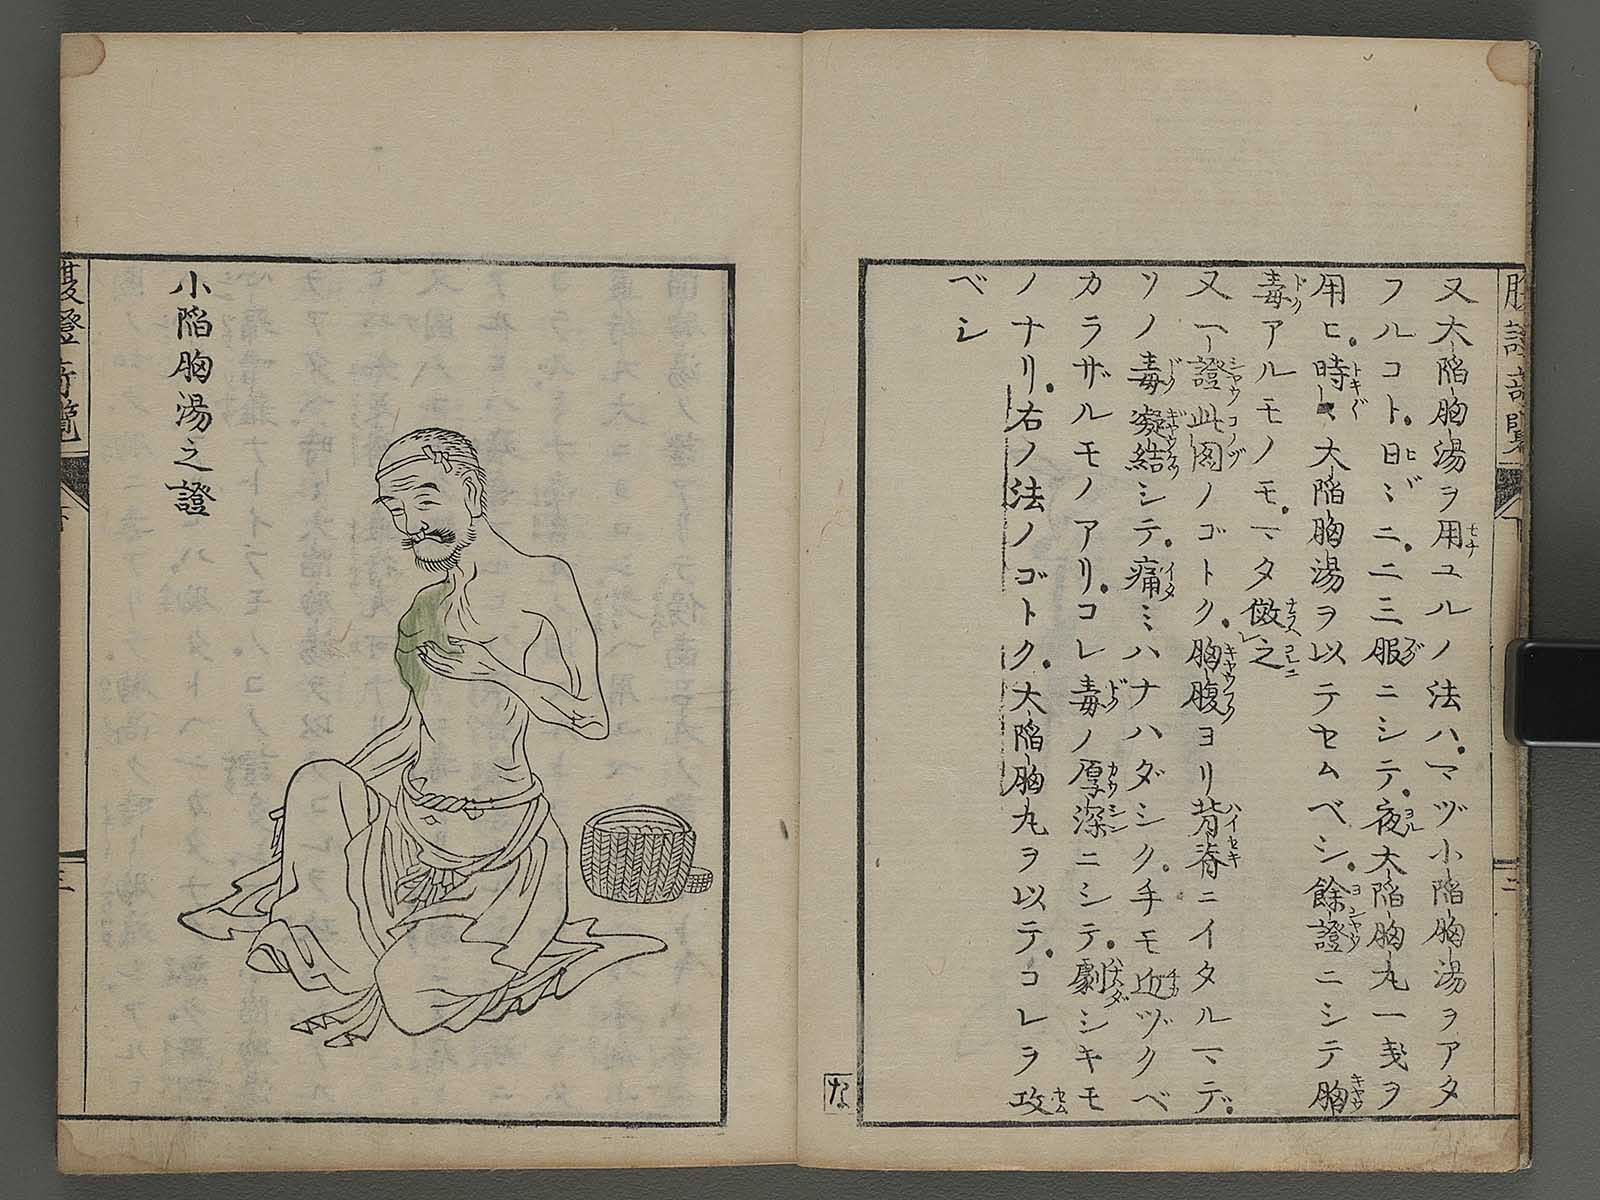 又大陷胸湯ヲ用ユルノ法ハマヅ小陷胸湯ヲアタ
フルコト日ミニ二三服ニシテ夜大陷胸丸一戔ヲ
用ヒ時ミ大陷胸湯ヲ以テセムベシ餘證ニシテ胸
毒アルモノモマタ倣之
又一證此圖ノゴトク胸腹ヨリ背脊ニイタルマデ
ソノ毒凝結シテ痛ミハナハダシク手モ近ヅクベ
カラザルモノアリコレ毒ノ厚深ニシテ劇シキモ
ノナリ右ノ法ノゴトク大陷胸丸ヲ以テコレヲ攻
ベシ
な
小陷胸湯之證